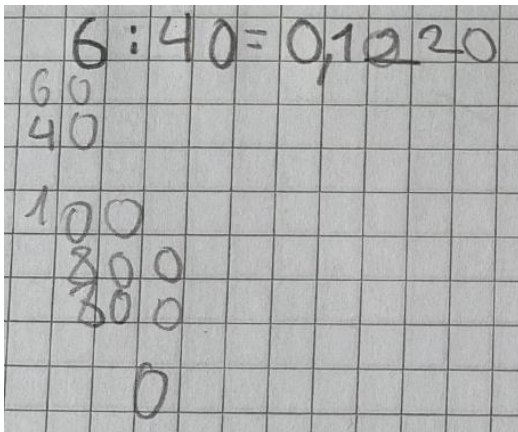 6 : 40 = 0,1220
60
40
100
800
800
0